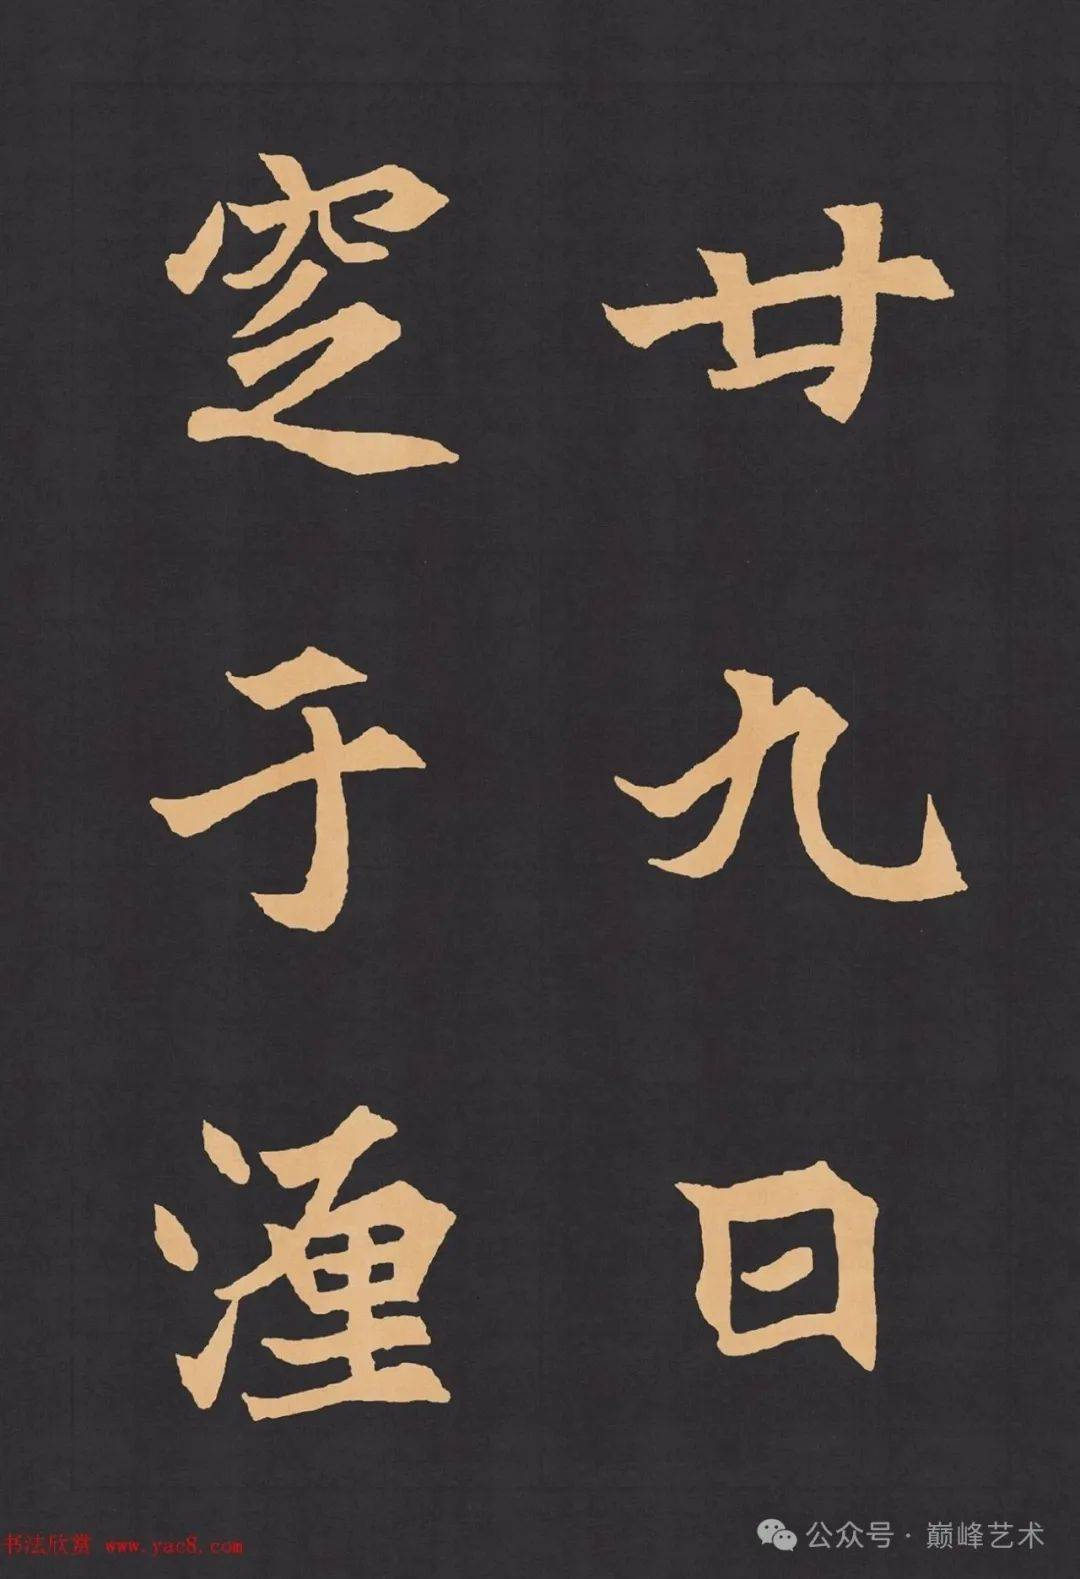 廿九日
窆于瀍
书法欣赏 www.yac8.com
公众号·巅峰艺术